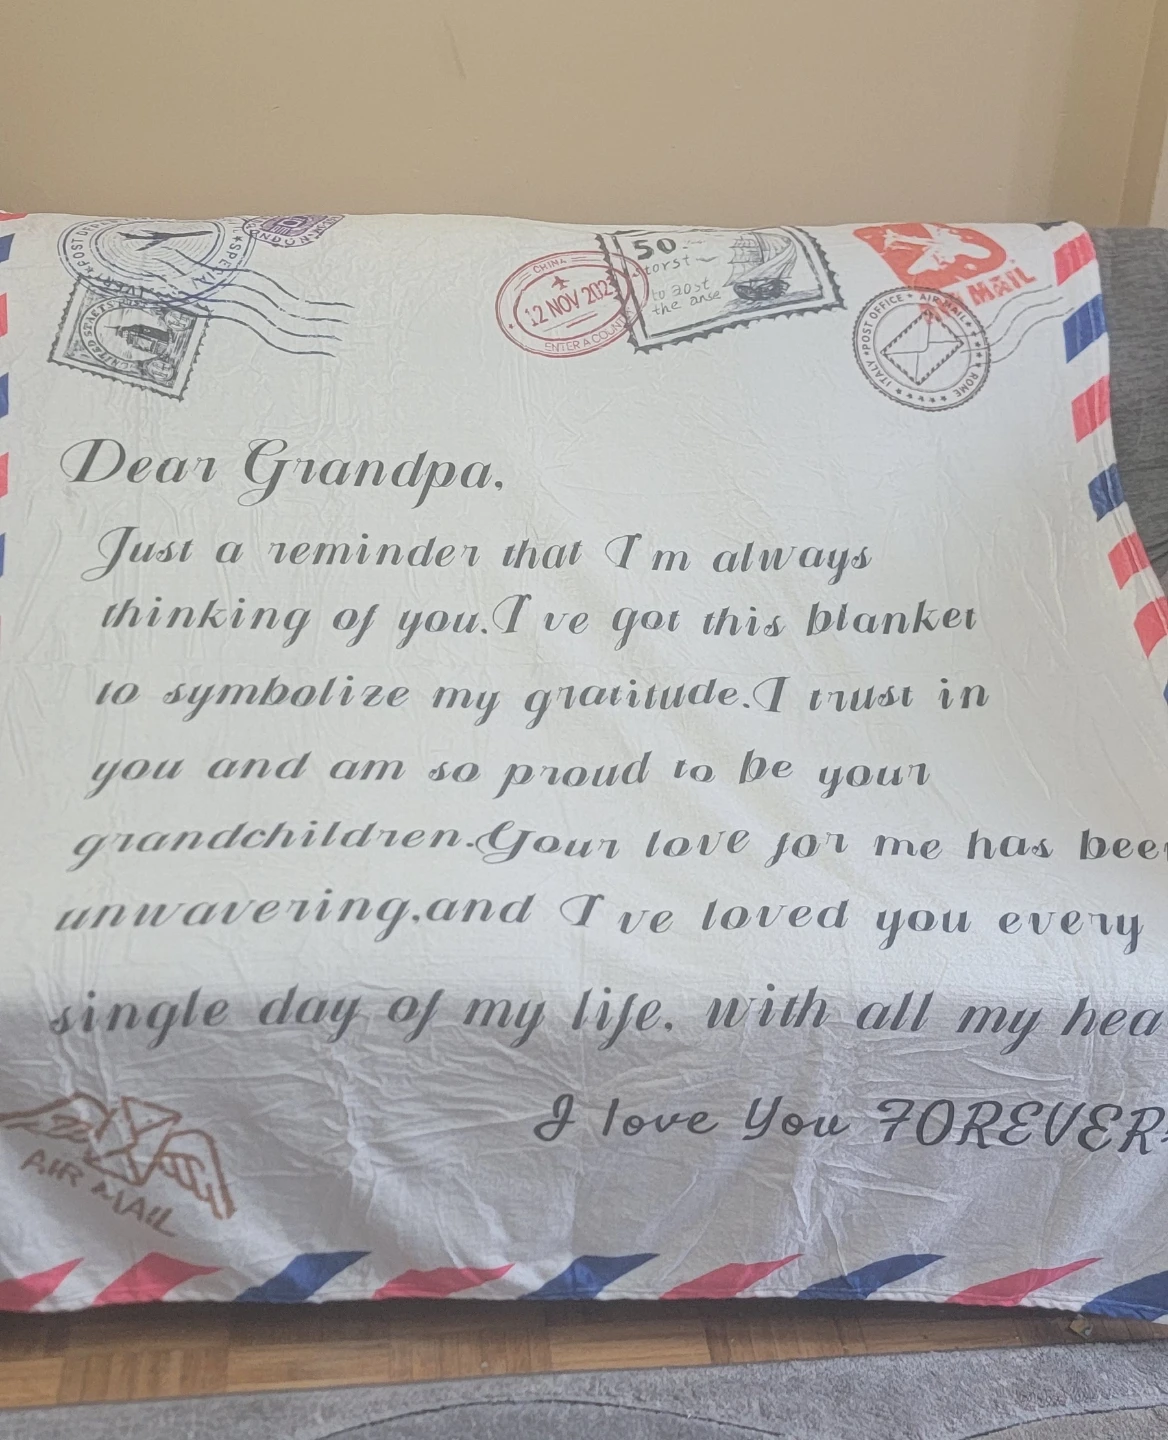 SPECIAL
UNITED STATES
CHINA
12 NOV 202
50
torst
to zost
the anse
MAIL
POST OFFICE ★ AIR MAIL
ITALY ★★★★★ ROME
Dear Grandpa,
Just a reminder that I m always
thinking of you.I ve got this blanket
to symbolize my gratitude.I trust in
you and am so proud to be your
grandchildren.Your love for me has bee
unwavering,and I ve loved you every
single day of my life, with all my hea
I love You FOREVER
AIR MAIL